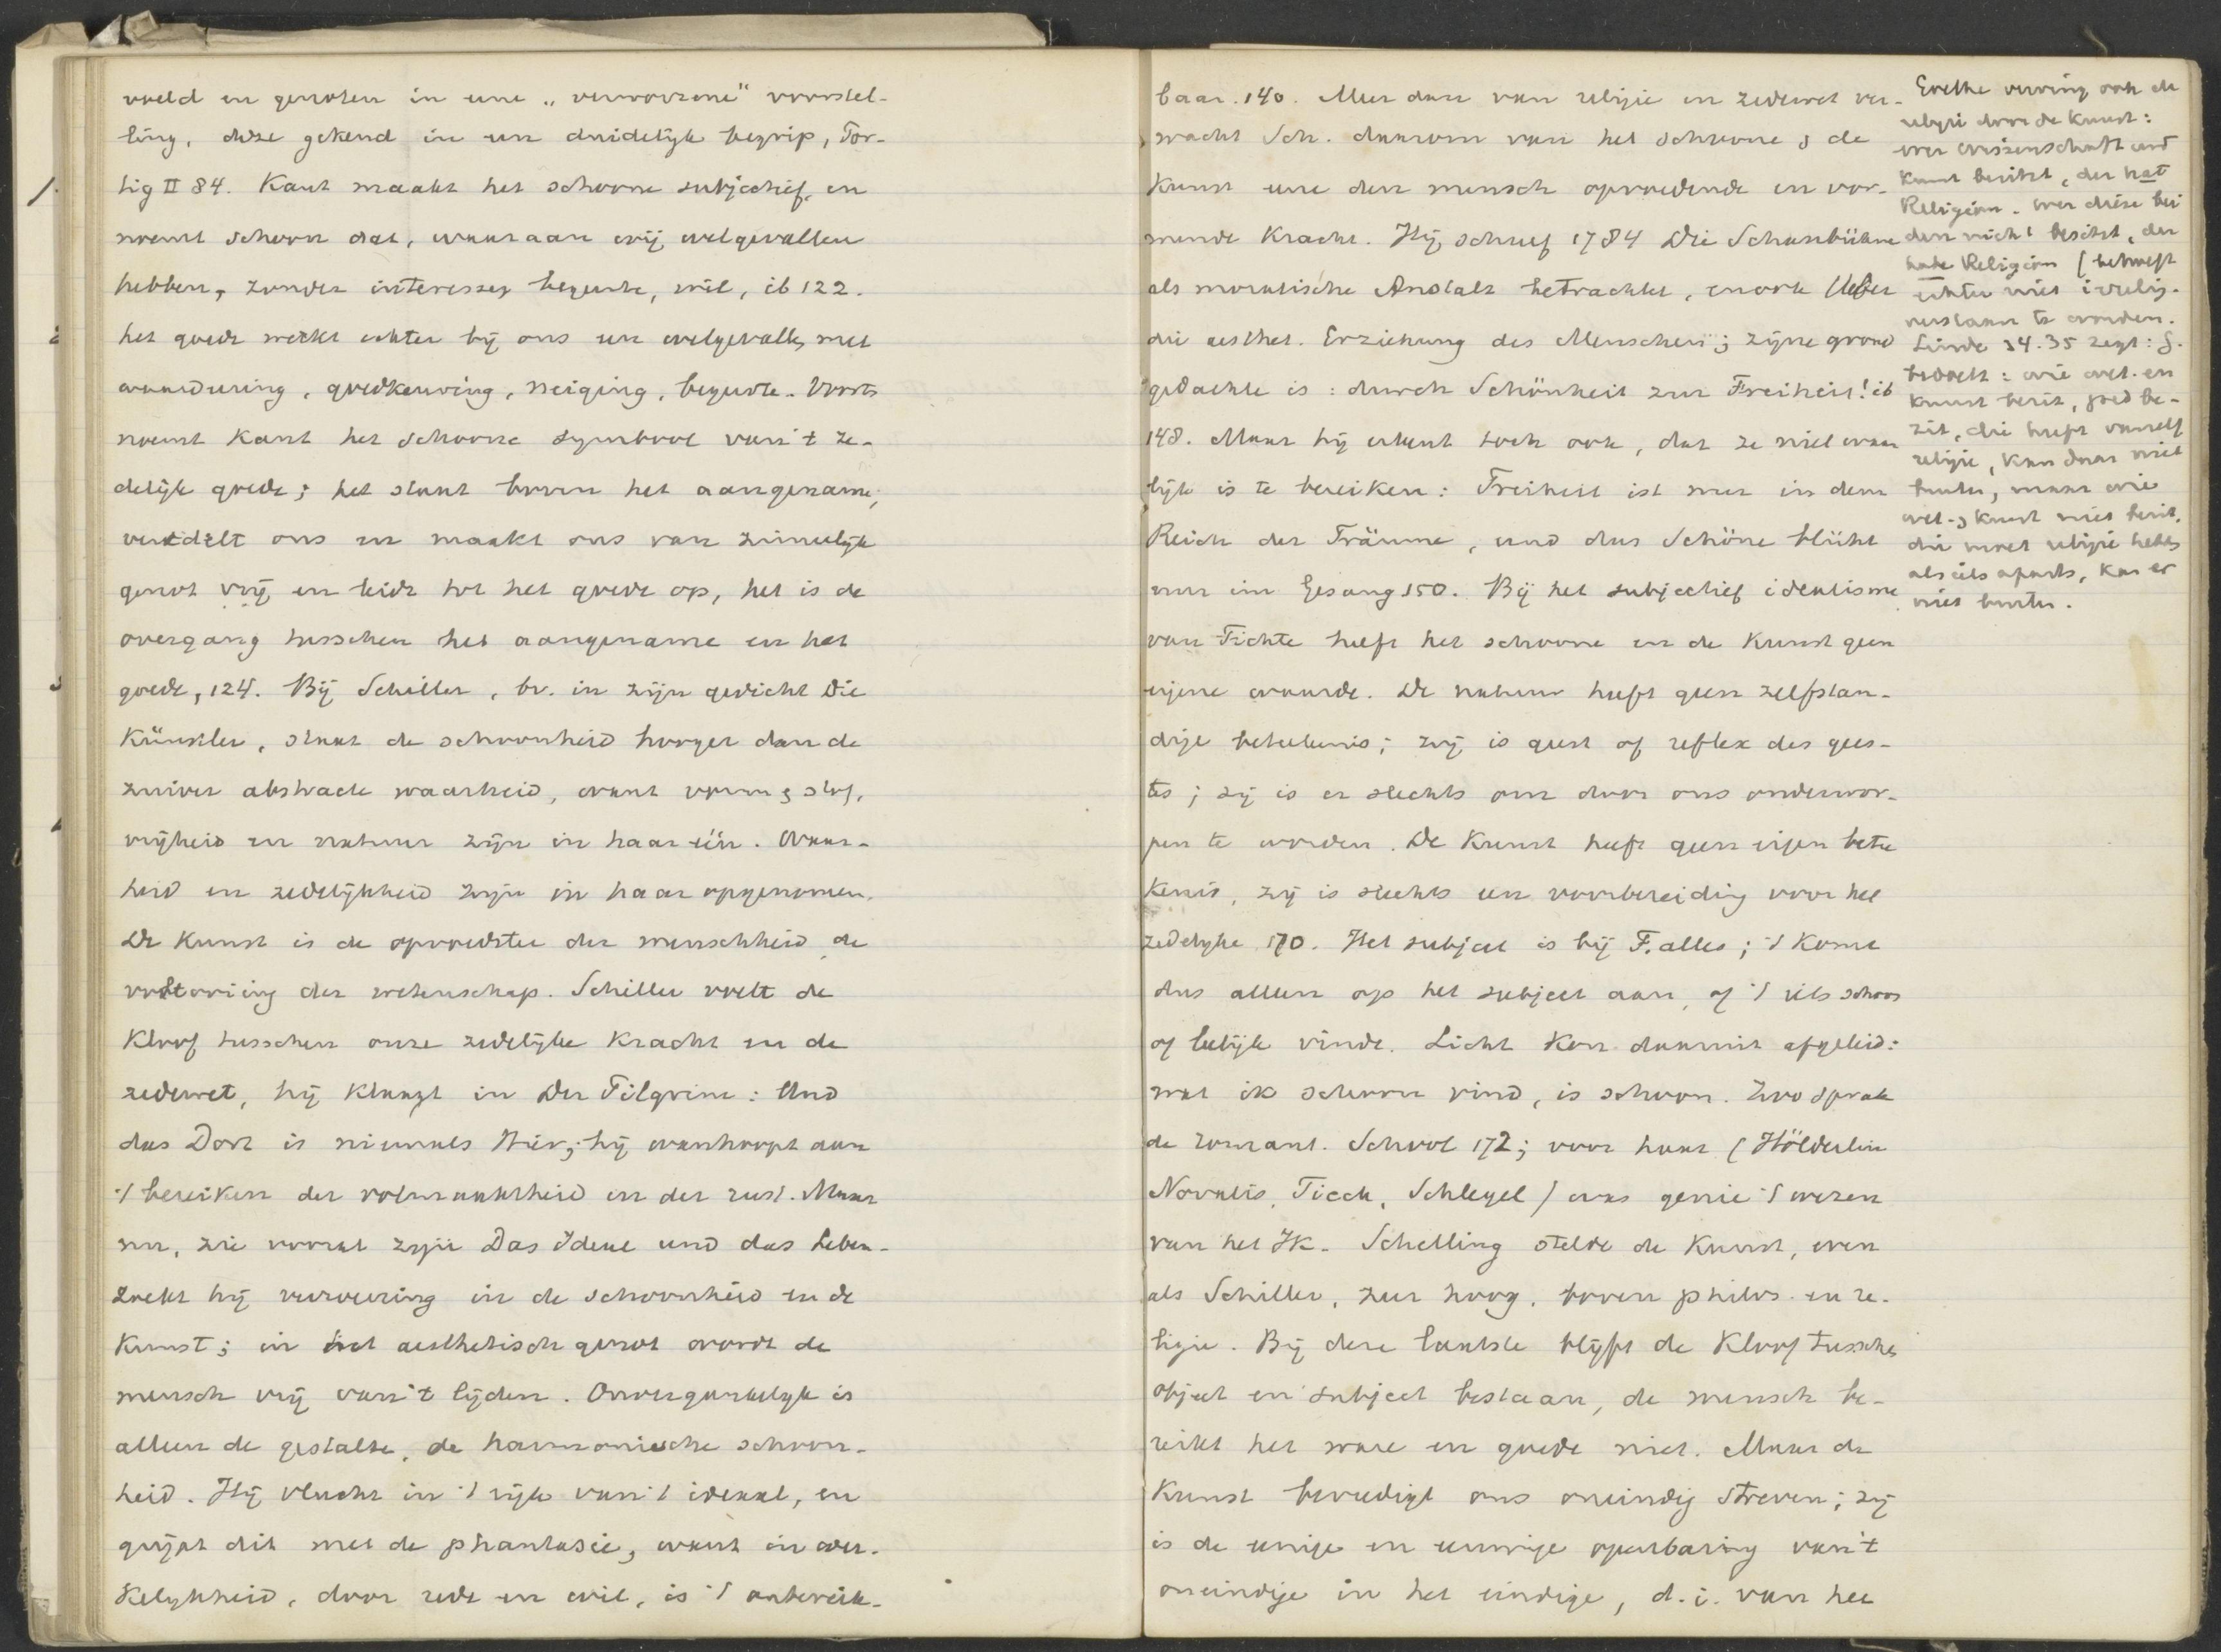 voeld en genoten in eene „verworrene" voorstel-
ling, deze gekend in een duidelijk begrip, Por-
tig II 84. Kant maakt het schoone subjectief, en
noemt schoon dat, waaraan wij welgevallen
hebben, zonder interesse, begeerte, wil, ib 122.
het goede wekt echter bij ons een welgevallen met
waardeering, goedkeuring, neiging, begeerte. Voorts
noemt Kant het schoone symbool van 't ze-
delijk goede; het staat boven het aangename,
veredelt ons en maakt ons van zinnelijk
genot vrij en leidt tot het goede op, het is de
overgang tusschen het aangename en het
goede, 124. Bij Schiller, bv. in zijn gedicht Die
Künstler, staat de schoonheid hooger dan de
zuiver abstracte waarheid, want vorm & stof,
vrijheid en natuur zijn in haar één. Waar-
heid en zedelijkheid zijn in haar opgenomen.
De Kunst is de opvoedster der menschheid, de
voltooiing der wetenschap. Schiller voelt de
Kloof tusschen onze zedelijke Kracht en de
zedewet, hij klaagt in Der Pilgrim: Und
das Dort is niemals Hier; hij wanhoopt aan
't bereiken der volmaaktheid en der rust. Maar
nu, zie vooral zijn Das Ideal und das Leben-
zoekt hij verzoening in de schoonheid en de
Kunst; in het aesthetisch genot wordt de
mensch vrij van 't lijden. Onvergankelijk is
alleen de gestalte, de harmonische schoon-
heid. Hij vlucht in 't rijk van 't ideaal, en
grijpt dit met de phantasie, want in wer-
kelijkheid, door rede en wil, is 't onbereik-
baar. 140. Meer dan van religie en zedewet ver-
wacht Sch. daarom van het schoone & de
Kunst eene den mensch opvoedende en vor-
mende Kracht. Hij schreef 1784 Die Schaubühne
als moralische Anstalt betrachtet, en ook Ueber
die aesthet. Erziehung des Menschen; zijne grond
gedachte is: durch Schönheit zur Freiheit! ib
148. Maar hij erkent toch ook, dat ze niet waar
lijk is te bereiken: Freiheit ist nur in dem
Reich der Träume, und das Schöne blüht
nur im Gesang 150. Bij het subjectief idealisme
van Fichte heeft het schoone en de Kunst geen
eigene waarde. De natuur heeft geen zelfstan-
dige beteekenis; zij is geest of reflex des gees-
tes; zij is er slechts om door ons onderwor-
pen te worden. De Kunst heeft geen eigen betee
kenis, zij is slechts een voorbereiding voor het
zedelijke 170. Het subject is bij F. alles; 't Komt
dus alleen op het subject aan, of 't iets schoon
of leelijk vindt. Licht Kon daaruit afgeleid:
wat ik schoon vind, is schoon. Zoo sprak
de romant. School 172; voor haar (Hölderlin
Novalis, Tieck, Schlegel) was genie 't wezen
van het Ik. Schelling stelde de Kunst, even
als Schiller, zeer hoog, boven philos. en re-
ligie. Bij deze laatste blijft de Kloof tusschen
object en subject bestaan, de mensch be-
reikt het ware en goede niet. Maar de
Kunst bevredigt ons oneindig streven; zij
is de eenige en eeuwige openbaring van 't
oneindige in het eindige, d.i. van het
Goethe verving ook de
religie door de Kunst:
wer Wissenschaft und
Kunst besitzt, der hat
Religion. Wer diese bei
den nicht besitzt, der
habe Religion (behoeft
echter niet
verstaan te worden.
Linde 34.35 zegt: G.
bedoelt: wie wet. en
Kunst bezit, goed be-
zit, die heeft vanzelf
religie, kan daar niet
buiten, maar wie
wet. & Kunst niet bezit,
die moet religie hebben
als iets aparts, kan er
niet buiten.